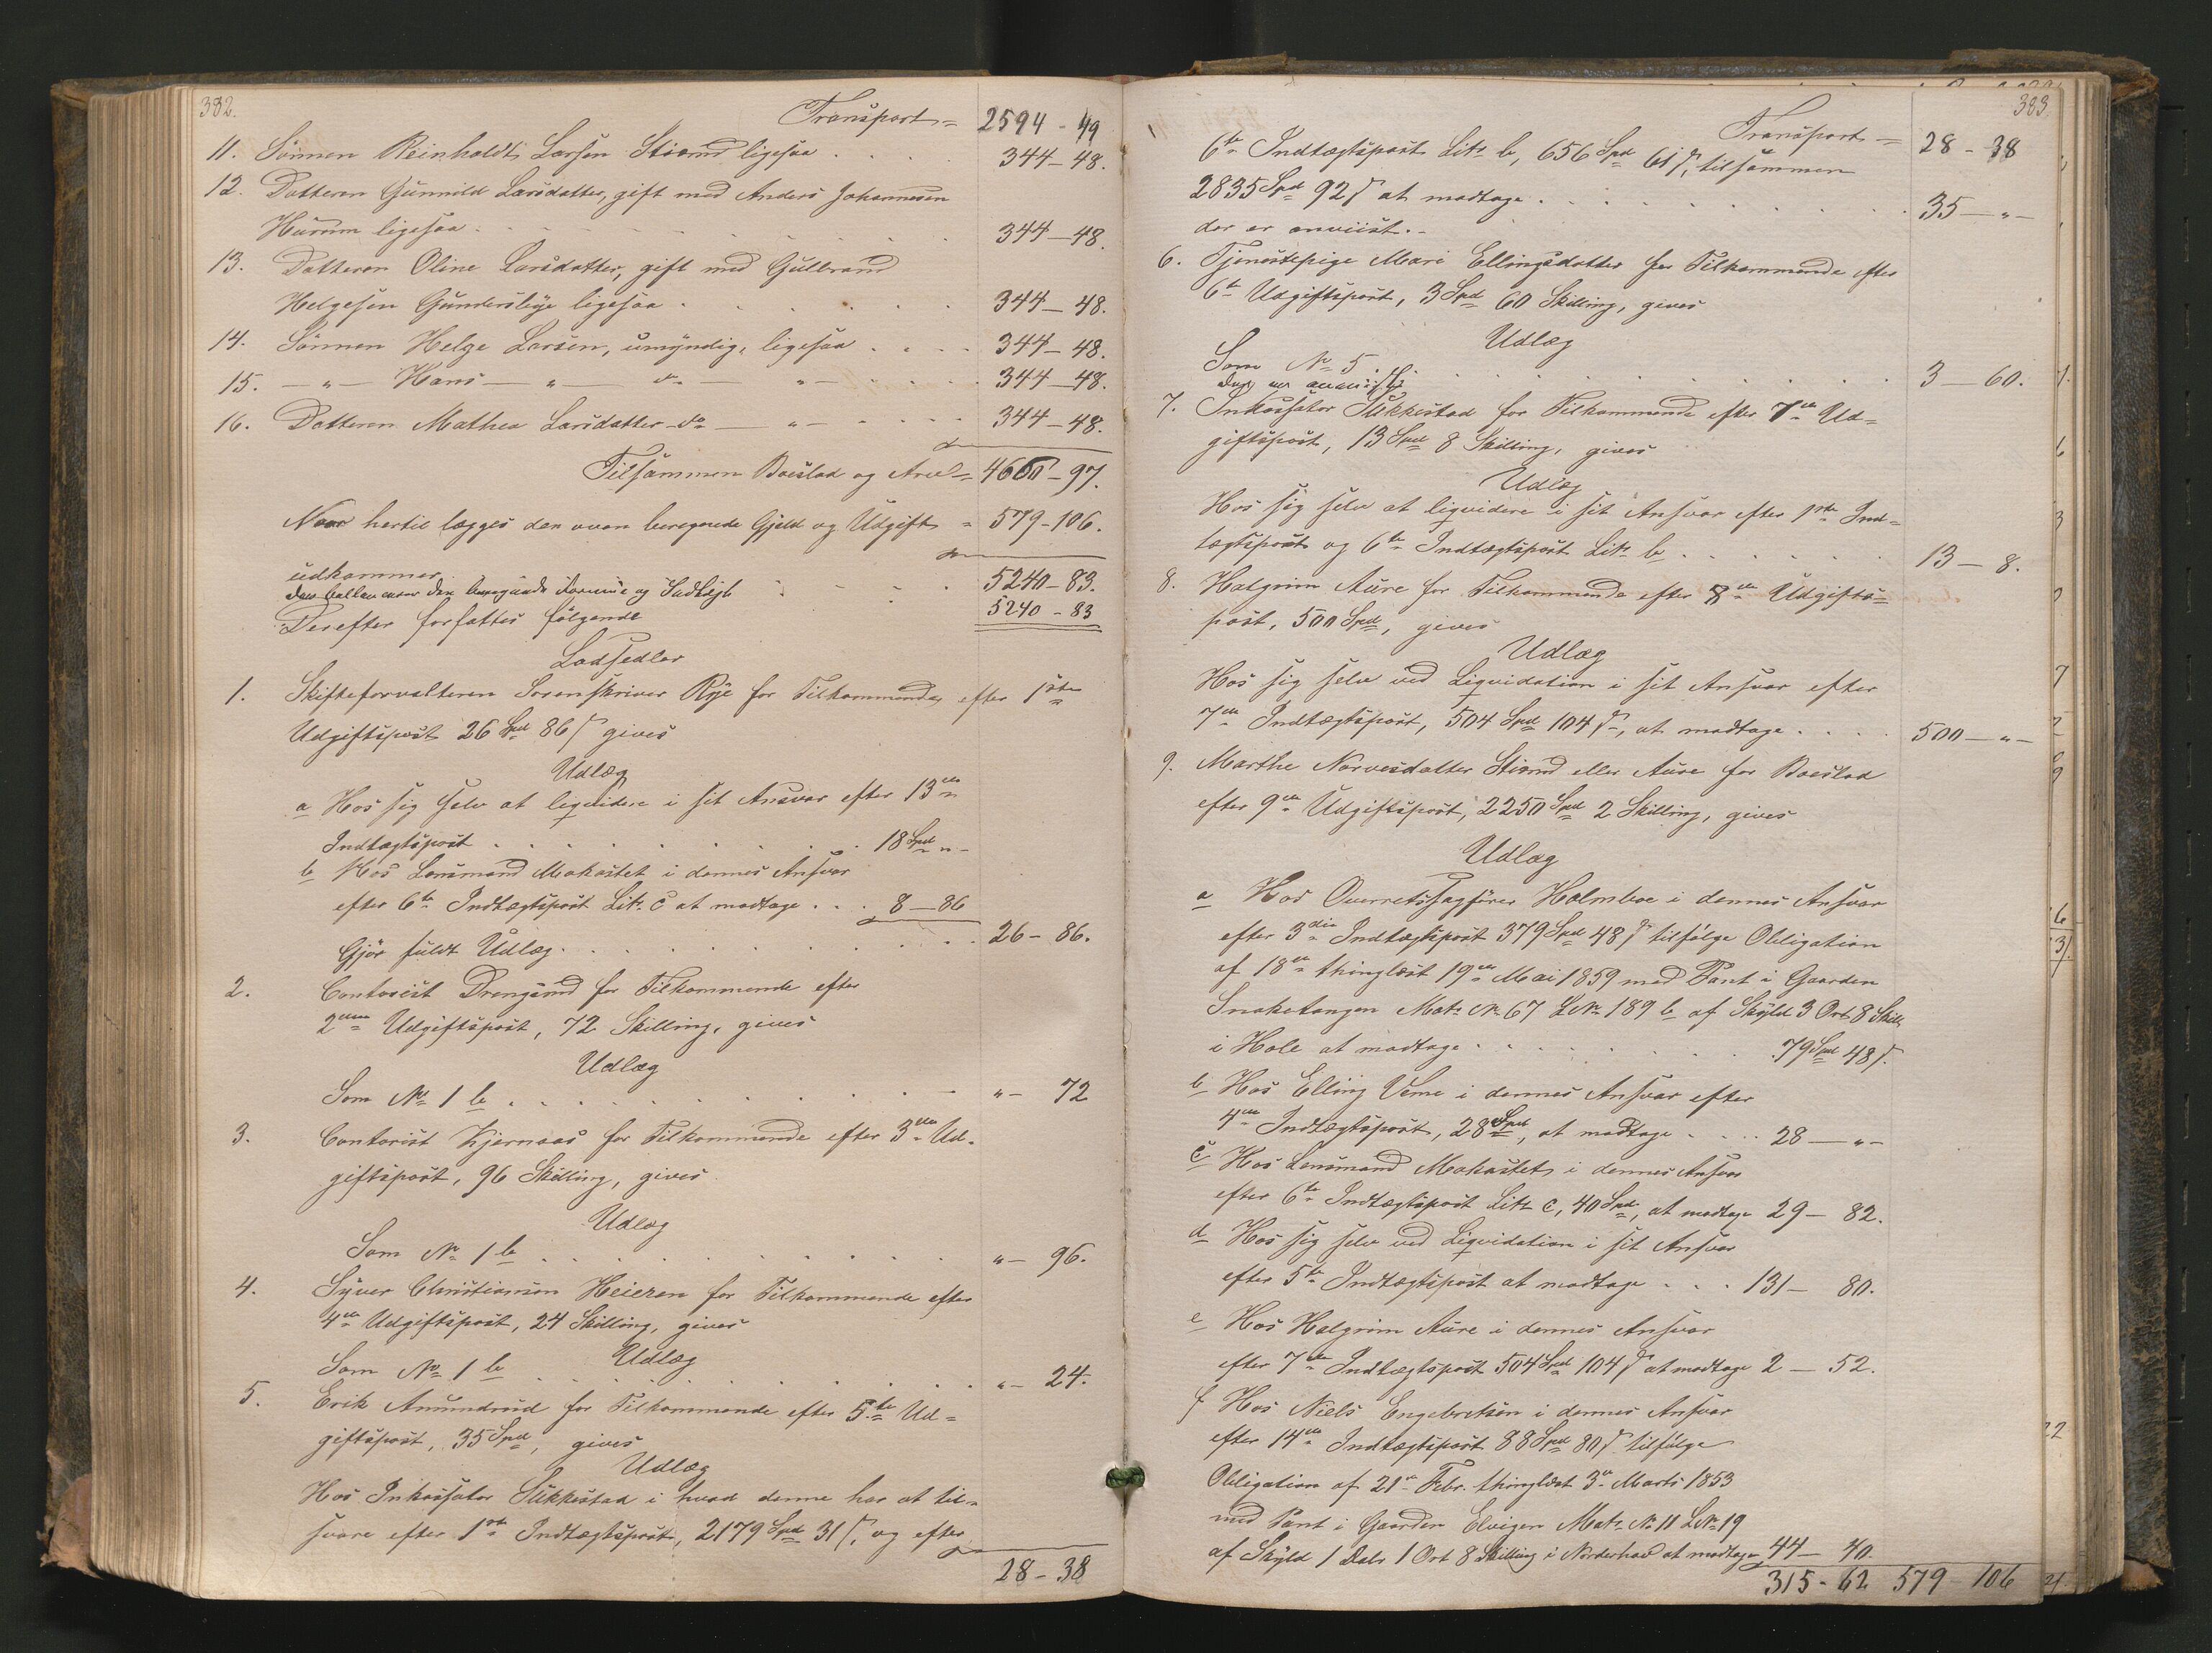 382.
Transport = 2594 - 49
11. Sønnen Reinholdt Larsen Stiömd ligesaa . . . . 344 - 48.
12. Datteren Gunnild Larsdatter, gift med Anders Johannesen
Hurum ligesaa . . . . . . . . 344 - 48.
13. Datteren Oline Larsdatter, gift med Gulbrand
Helgesen Gundersbye ligesaa . . . . . . 344 - 48.
14. Sønnen Helge Larsen, umyndig, ligesaa . . . . 344 - 48.
15. — " — Hans — " — do — " — . . . . 344 - 48.
16. Datteren Mathea Larsdatter do — " — . . . . 344 - 48.
Tilsammen Boeslod og Arv = 4660 - 97.
Naar hertil lægges den oven beregnede Gjeld og Udgift = 579 - 106.
udkommer . . . . 5240 - 83.
der ballancerer den beregnede Formue og Indtægt 5240 - 83
Derefter forfattes følgende
Lodsedler
1. Skifteforvalteren Sorenskriver Rye for Tilkommende efter 1ste
Udgiftspost 26 Spd 86 ß gives
Udlæg
a Hos sig selv at liqvidere i sit Ansvar efter 13de
Indtægtspost . . . . . . . . 18 Spd " -
b Hos Lensmand Mokastet i dennes Ansvar
efter 6te Indtægtspost Litr. c at modtage . . . 8 - 86
Gjør fuldt Udlæg . . . . . . . . 26 - 86.
2. Contorist Drengsrud for Tilkommende efter
2den Udgiftspost, 72 Skilling, gives
Udlæg
Som No 1 b . . . . . . . . " - 72
3. Contorist Kjernaas for Tilkommende efter 3die Ud-
giftspost, 96 Skilling, gives
Udlæg
Som No 1 b . . . . . . . . " - 96.
4. Syver Christiansen Heieren for Tilkommende efter
4de Udgiftspost, 24 Skilling, gives
Udlæg
Som No 1 b . . . . . . . . " - 24.
5. Erik Amundrud for Tilkommende efter 5te Ud-
giftspost, 35 Spd, gives
Udlæg
Hos Inkassator Slikkestad i hvad denne har at til-
svare efter 1ste Indtægtspost, 2179 Spd 31 ß, og efter
28 - 38
383
Transport = 28 - 38
6te Indtægtspost Litr. b, 656 Spd 61 ß, tilsammen
2835 Spd 92 ß at modtage . . . . . . . . 35 - " -
der er anviist. -
6. Tjenestepige Mari Ellingsdatter for Tilkommende efter
6te Udgiftspost, 3 Spd 60 Skilling, gives
Udlæg
Som No 5 . . . . . . . . 3 - 60.
der er anviist
7. Inkassator Slikkestad for Tilkommende efter 7de Ud-
giftspost, 13 Spd 8 Skilling, gives
Udlæg
Hos sig selv at liqvidere i sit Ansvar efter 1ste Ind-
tægtspost og 6te Indtægtspost Litr. b . . . . . . 13 - 8.
8. Halgrim Aure for Tilkommende efter 8de Udgifts-
post, 500 Spd, gives
Udlæg
Hos sig selv ved Liqvidation i sit Ansvar efter
7de Indtægtspost, 504 Spd 104 ß, at modtage . . . . 500 - " -
9. Marthe Narvesdatter Stiömd eller Aure for Boeslod
efter 9de Udgiftspost, 2250 Spd 2 Skilling, gives
Udlæg
a Hos Overretssagfører Holmboe i dennes Ansvar
efter 3die Indtægtspost 379 Spd 48 ß tilfølge Obligation
af 18de thinglæst 19de Mai 1859 med Pant i Gaarden
Snaketangen Matr. No 67 L No 189 b af Skyld 3 Ort 8 Skill.
i Hole at modtage . . . . . . 79 Spd 48 ß.
b Hos Elling Veme i dennes Ansvar efter
4de Indtægtspost, 28 Spd, at modtage . . . . 28 - " -
c Hos Lensmand Mokastet i dennes Ansvar
efter 6te Indtægtspost Litr. c, 40 Spd, at modtage 29 - 82.
d Hos sig selv ved Liqvidation i sit Ansvar
efter 5te Indtægtspost at modtage . . . 131 - 80.
e Hos Halgrim Aure i dennes Ansvar
efter 7de Indtægtspost 504 Spd 104 ß at modtage 2 - 52.
f Hos Niels Engebretsen i dennes Ansvar
efter 14de Indtægtspost 88 Spd 80 ß tilfølge
Obligation af 21de Febr. thinglæst 3de Marts 1853
med Pant i Gaarden Elvigen Matr. No 11 L No 19
af Skyld 1 Dalr 1 Ort 8 Skilling i Norderhov at modtage 44 - 40
315 - 62 579 - 106